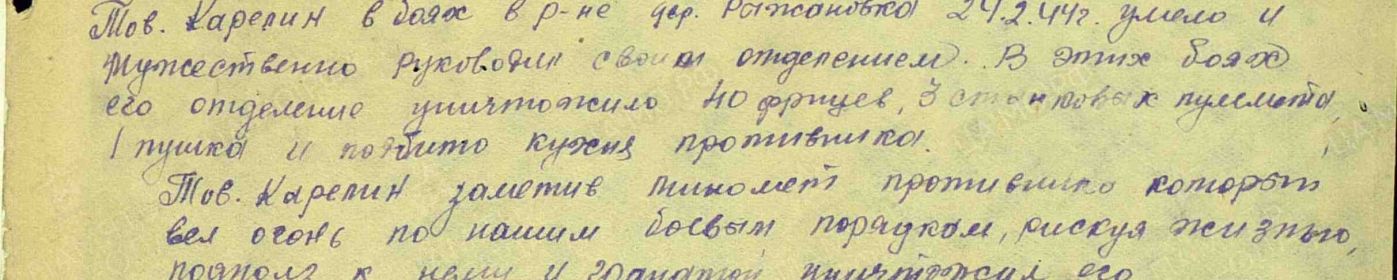 Тов. Карелин в боях в р-не дер. Рыжановка 24.2.44г. умело и
мужественно руководил своим отделением. В этих боях
его отделение уничтожило 40 фрицев, 3 станковых пулемета,
1 пушка и подбито кухня противника.
Тов. Карелин заметив миномет противника который
вел огонь по нашим боевым порядком, рискуя жизнью,
подполз к нему и гранатой уничтожил его